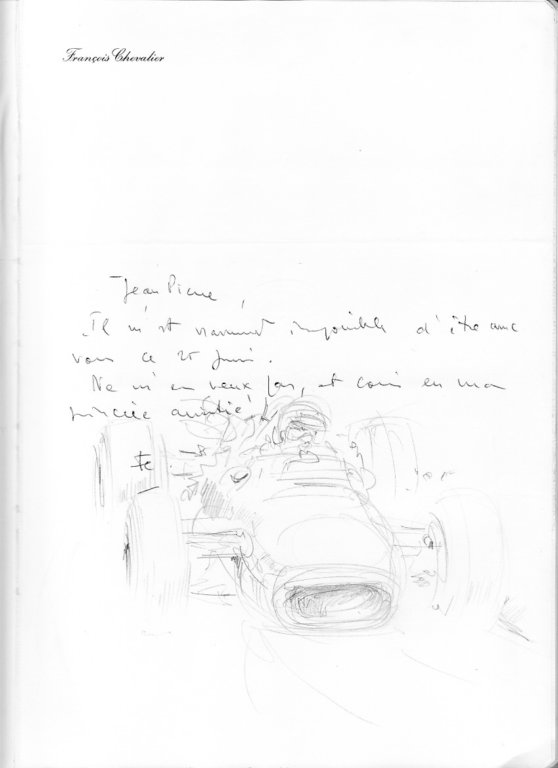 François Chevalier
Jean Pierre,
Il m'est vraiment impossible d'être avec
vous ce 25 Juin.
Ne m'en veux pas, et crois en ma
sincère amitié!
Fc